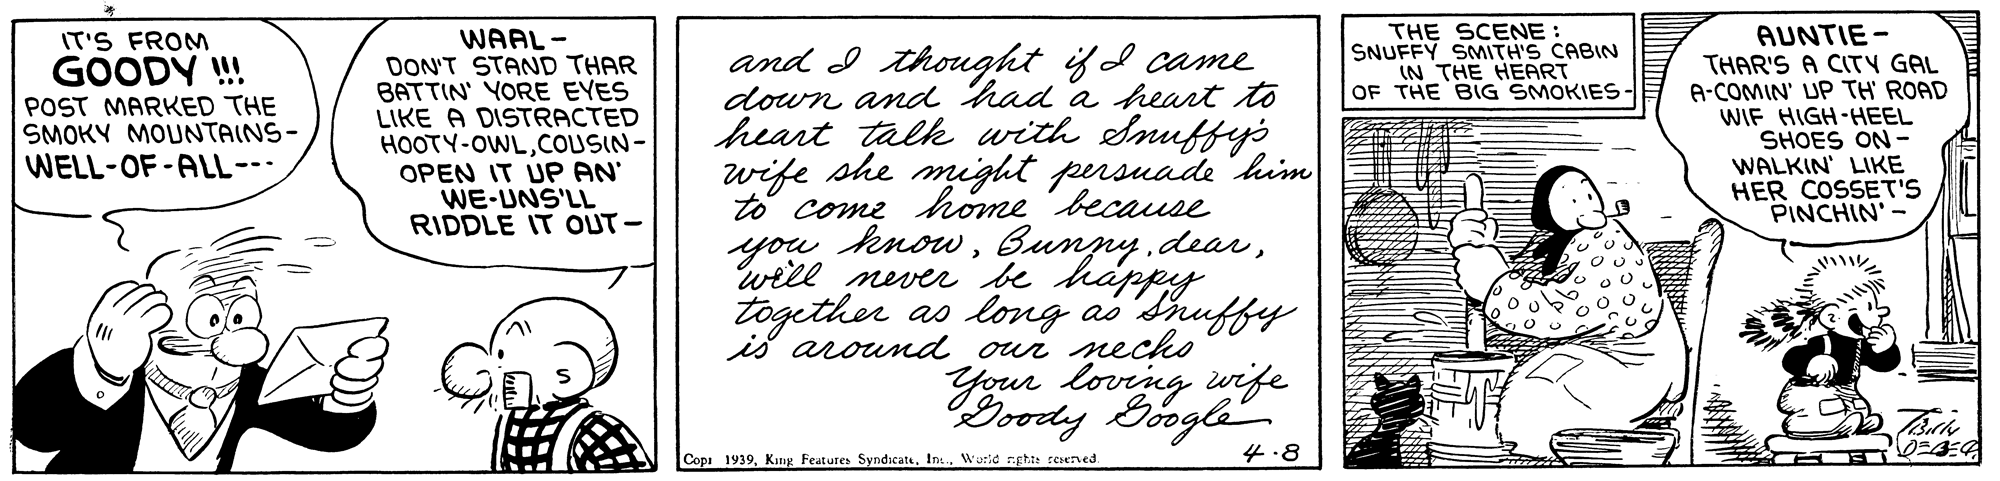 IT'S FROM
GOODY !!!
POST MARKED THE
SMOKY MOUNTAINS-
WELL-OF-ALL---
WAAL-
DON'T STAND THAR
BATTIN' YORE EYES
LIKE A DISTRACTED
HOOTY-OWL, COUSIN-
OPEN IT UP AN'
WE-UNS'LL
RIDDLE IT OUT-
S
and I thought if I came
down and had a heart to
heart talk with Snuffy's
wife she might persuade him
to come home because
you know, Bunny, dear,
we'll never be happy
together as long as Snuffy
is around our necks
Your loving wife
Goody Google
4-8
Copr 1939, King Features Syndicate, Inc., World rights reserved.
THE SCENE:
SNUFFY SMITH'S CABIN
IN THE HEART
OF THE BIG SMOKIES-
AUNTIE-
THAR'S A CITY GAL
A-COMIN' UP TH' ROAD
WIF HIGH-HEEL
SHOES ON-
WALKIN' LIKE
HER COSSET'S
PINCHIN'-
Billy
DeBeck